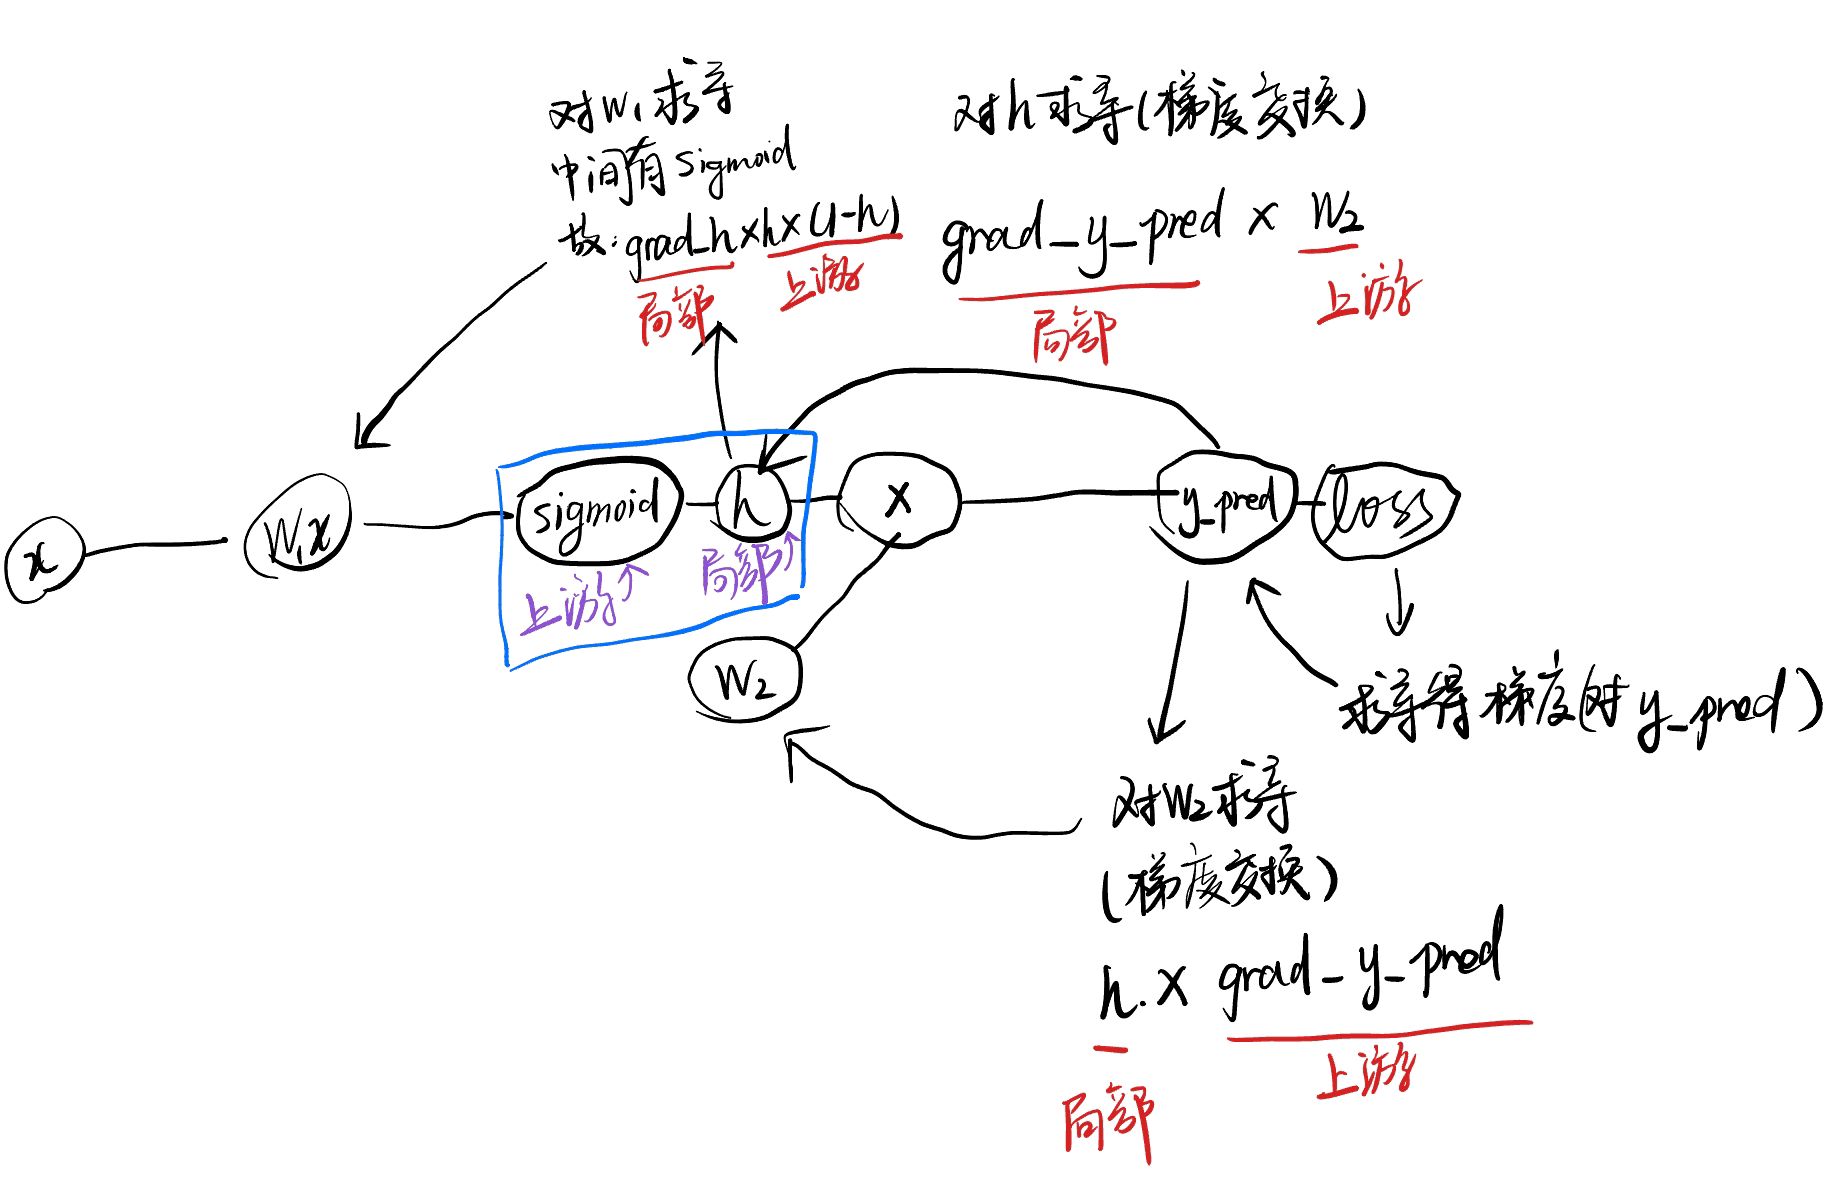 对W₁求导
中间有sigmoid
故:grad_h×h×(1-h)
局部
上游
对h求导(梯度变换)
grad_y_pred × W₂
局部
上游
x
W₁x
sigmoid
h
×
y_pred
loss
上游↑
局部↑
W₂
求导得梯度(对y_pred)
对W₂求导
(梯度变换)
h.× grad_y_pred
局部
上游